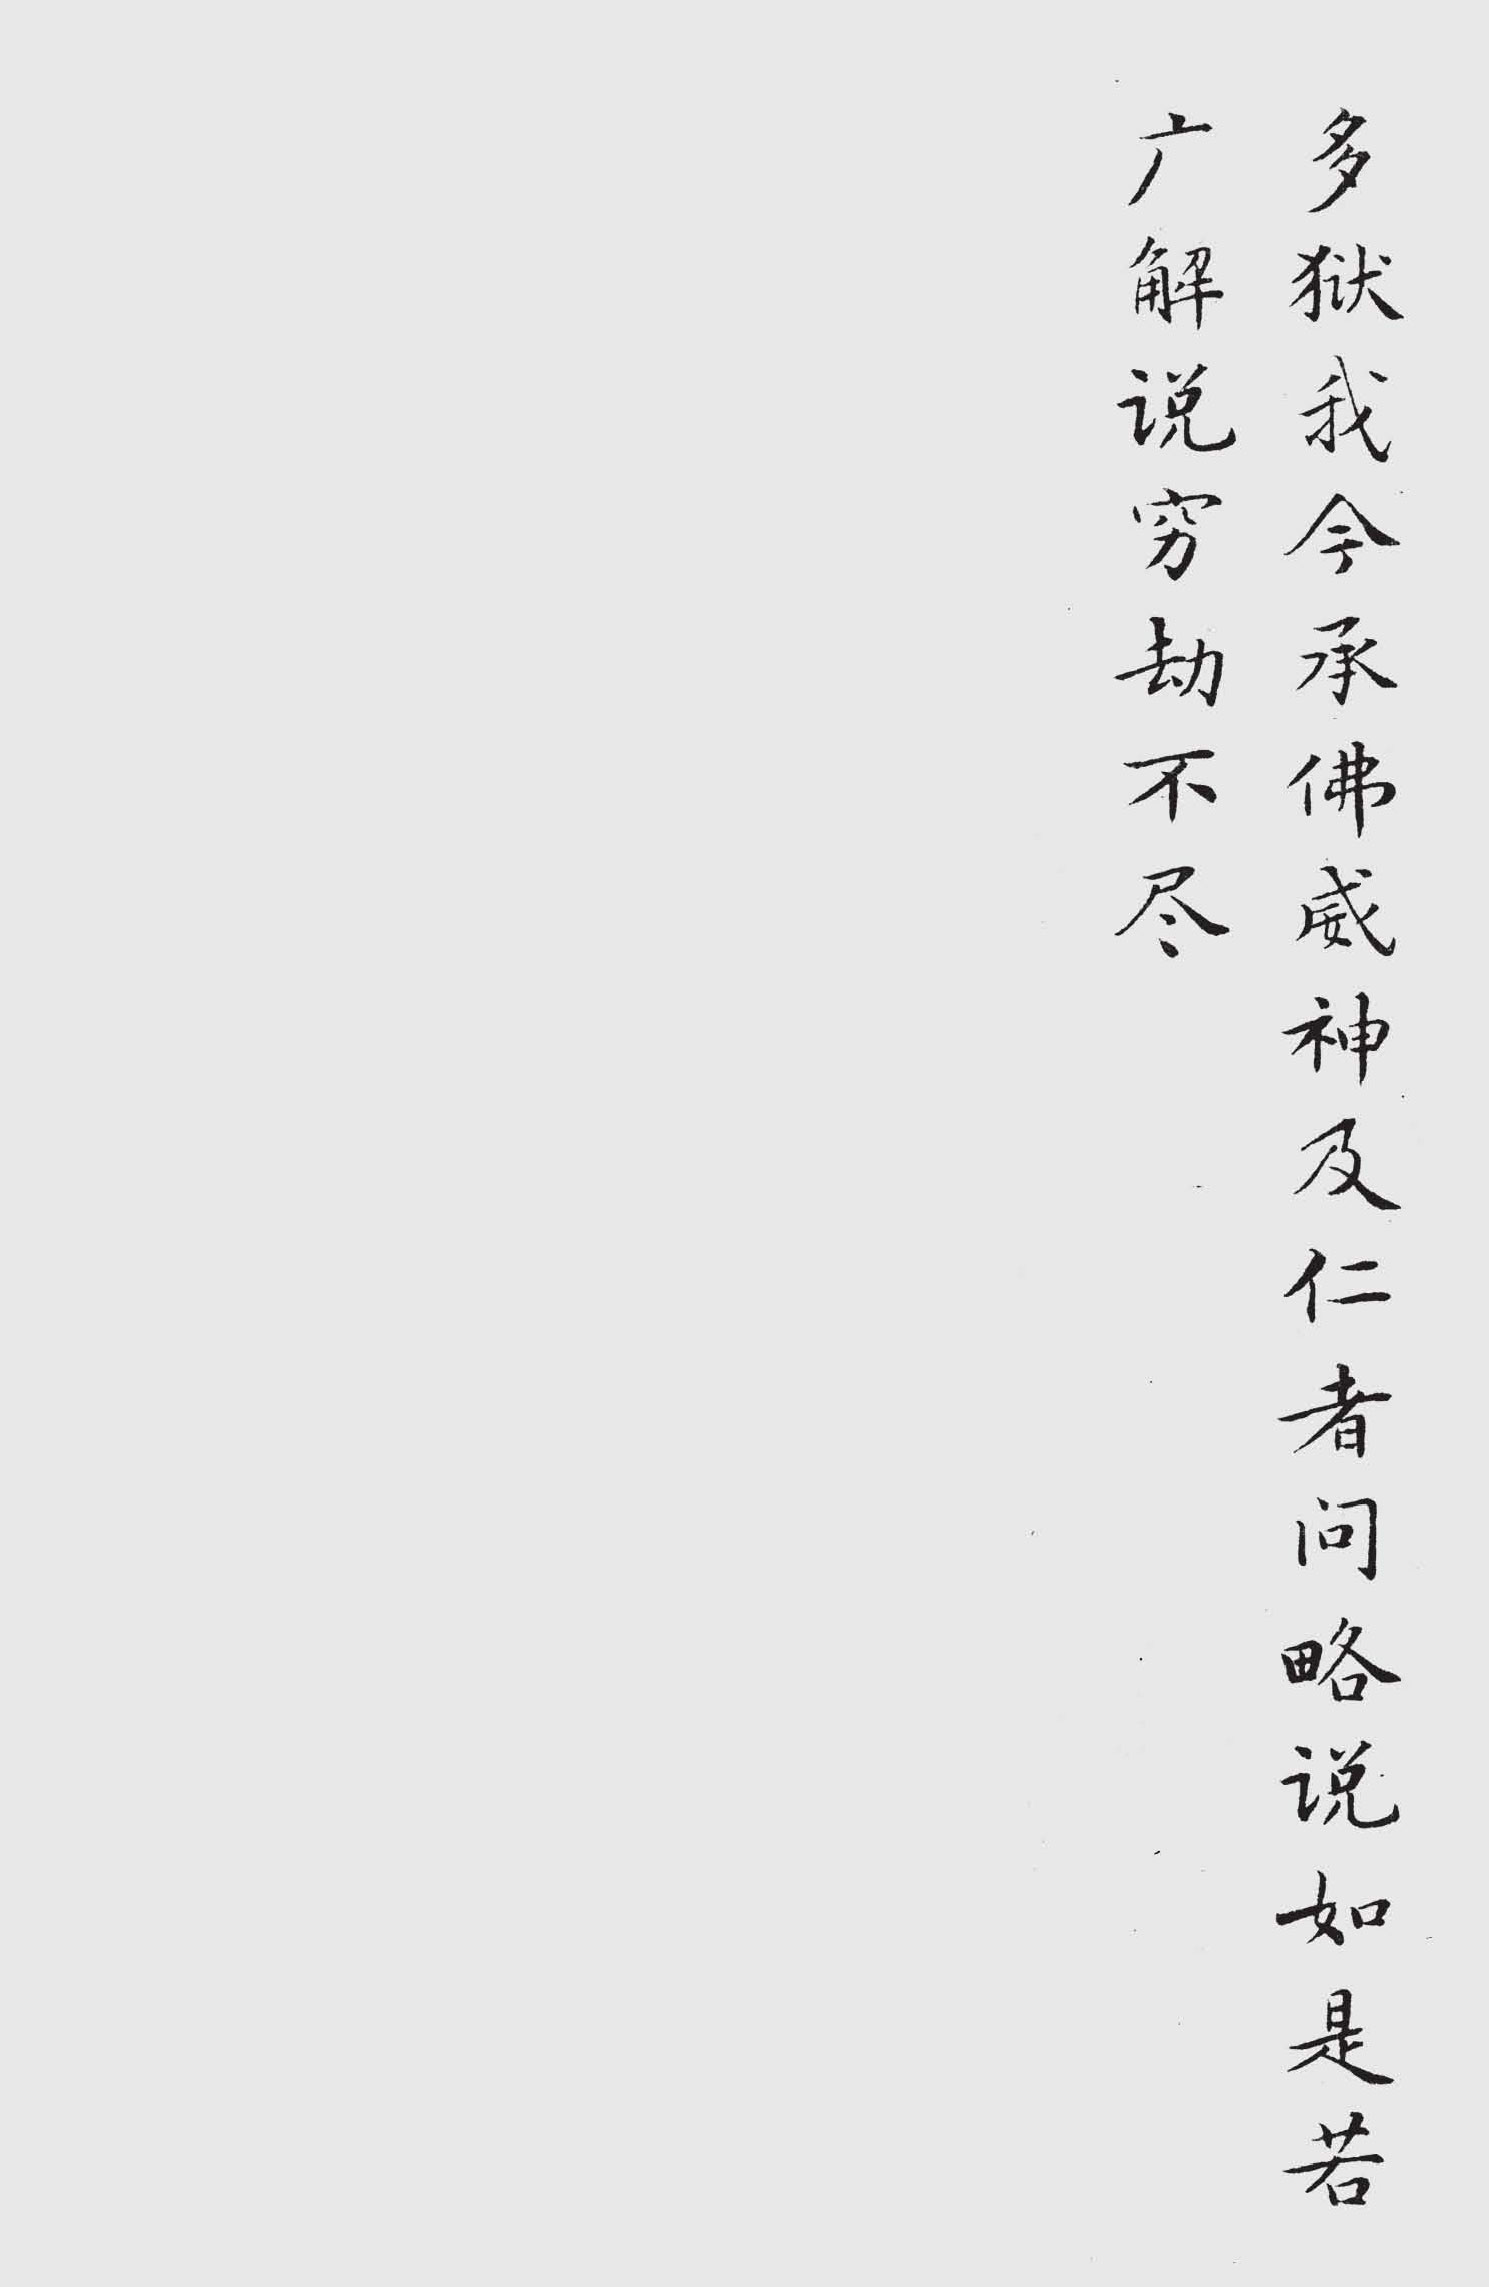 多狱我今承佛威神及仁者问略说如是若
广解说穷劫不尽